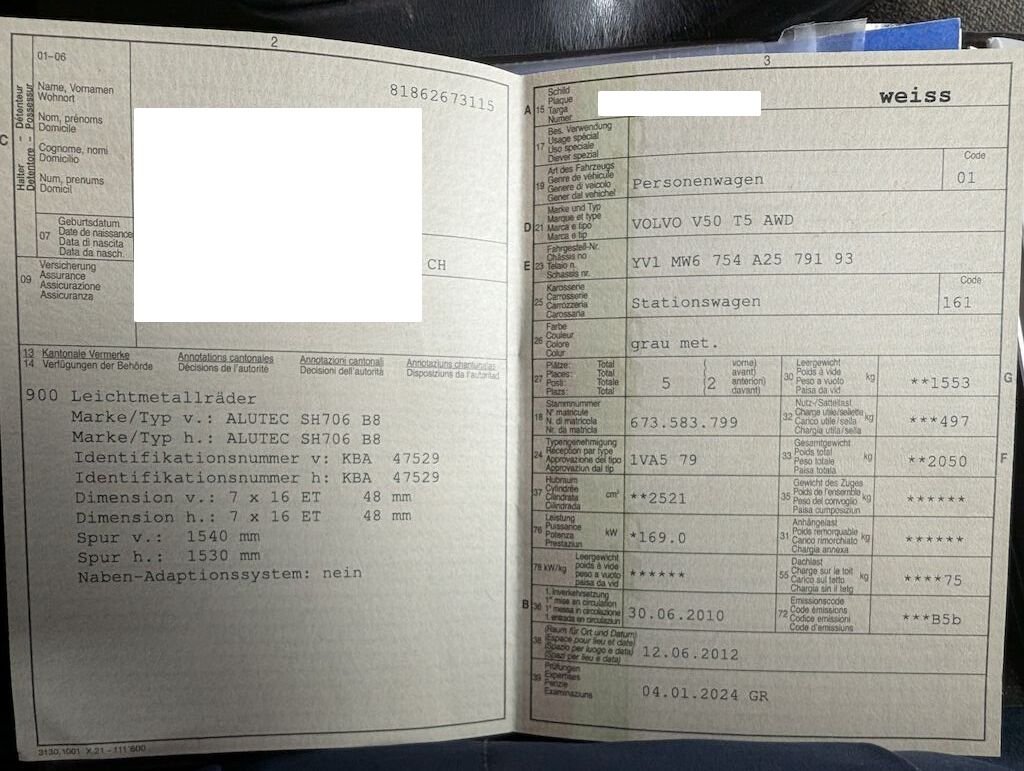 2
01-06
81862673115
Halter - Détenteur
Detentore - Possessur
C
Name, Vornamen
Wohnort
Nom, prénoms
Domicile
Cognome, nomi
Domicilio
Num, prenums
Domicil
07
Geburtsdatum
Date de naissance
Data di nascita
Data da nasch.
CH
09
Versicherung
Assurance
Assicurazione
Assicuranza
13 Kantonale Vermerke
14 Verfügungen der Behörde
Annotations cantonales
Décisions de l'autorité
Annotazioni cantonali
Decisioni dell'autorità
Annotaziuns chantunalas
Disposiziuns da l'autoritad
900 Leichtmetallräder
Marke/Typ v.: ALUTEC SH706 B8
Marke/Typ h.: ALUTEC SH706 B8
Identifikationsnummer v: KBA 47529
Identifikationsnummer h: KBA 47529
Dimension v.: 7 x 16 ET 48 mm
Dimension h.: 7 x 16 ET 48 mm
Spur v.: 1540 mm
Spur h.: 1530 mm
Naben-Adaptionssystem: nein
3130,1001 X.21 - 111'600
3
A 15
Schild
Plaque
Targa
Numer
weiss
17
Bes. Verwendung
Usage spécial
Uso speciale
Diever spezial
19
Art des Fahrzeugs
Genre de véhicule
Genere di veicolo
Gener dal vehichel
Personenwagen
Code
01
D 21
Marke und Typ
Marque et type
Marca e tipo
Marca e tip
VOLVO V50 T5 AWD
E 23
Fahrgestell-Nr.
Châssis no
Telaio n.
Schassis nr.
YV1 MW6 754 A25 791 93
25
Karosserie
Carrosserie
Carrozzeria
Carossaria
Stationswagen
Code
161
26
Farbe
Couleur
Colore
Colur
grau met.
27
Plätze: Total
Places: Total
Posti: Totale
Plazs: Total
5 (2
vorne)
avant)
anteriori)
davant)
30
Leergewicht
Poids à vide
Peso a vuoto
Paisa da vid
kg
**1553
G
18
Stammnummer
N° matricule
N. di matricola
Nr. da matricla
673.583.799
32
Nutz-/Sattellast
Charge utile/sellette
Carico utile/sella
Chargia utila/sella
kg
***497
24
Typengenehmigung
Réception par type
Approvazione del tipo
Approvaziun dal tip
1VA5 79
33
Gesamtgewicht
Poids total
Peso totale
Paisa totala
kg
**2050
F
37
Hubraum
Cylindrée
Cilindrata
Cilindrada
cm³
**2521
35
Gewicht des Zuges
Poids de l'ensemble
Peso del convoglio
Paisa cumposiziun
kg
******
76
Leistung
Puissance
Potenza
Prestaziun
kW
*169.0
31
Anhängelast
Poids remorquable
Carico rimorchiato
Chargia annexa
kg
******
78 kW/kg
Leergewicht
poids à vide
peso a vuoto
paisa da vid
******
55
Dachlast
Charge sur le toit
Carico sul tetto
Chargia sin il tetg
kg
****75
B 36
1. Inverkehrsetzung
1re mise en circulation
1a messa in circolazione
1. entrada en circulaziun
30.06.2010
72
Emissionscode
Code émissions
Codice emissioni
Code d'emissiuns
***B5b
38
(Raum für Ort und Datum)
(Espace pour lieu et date)
(Spazio per luogo e data)
(Spazi per lieu e data)
12.06.2012
39
Prüfungen
Expertises
Perizie
Examinaziuns
04.01.2024 GR